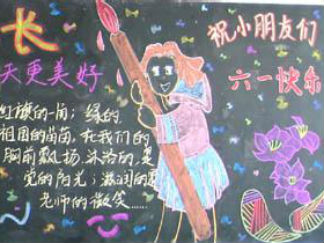 长
天更美好
祝小朋友们
六一快乐
红旗的一角；绿的，
祖国的苗苗，在我们的
胸前飘扬，沐浴的，是
党的阳光；滋润的是
老师的微笑……